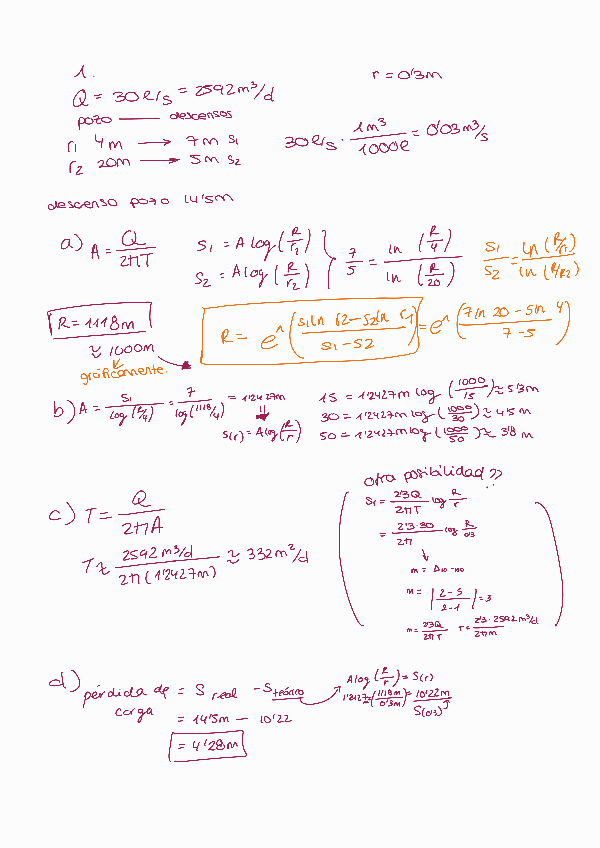 1.
r = 0'3m
Q = 30 l/s = 2592 m³/d
pozo — descensos
r₁ 4m → 7m s₁
r₂ 20m → 5m s₂
30 l/s · 1m³/1000l = 0'03 m³/s
descenso pozo 14'5m
a) A = Q/2πT
s₁ = A log (R/r₁)
s₂ = A log (R/r₂)
7/5 = ln (R/4) / ln (R/20)
s₁/s₂ = ln (R/r₁) / ln (R/r₂)
R = 1118m
≈ 1000m
gráficamente.
R = e^ (s₁ln r2 - s₂ln r1 / s1 - s2) = e^ (7ln 20 - 5ln 4 / 7 - 5)
b) A = s₁/log(R/4) = 7/log(1118/4) = 1'2427m
⇓
s(r) = A log (R/r)
15 = 1'2427m log (1000/15) ≈ 5'3m
30 = 1'2427m log (1000/30) ≈ 4'5m
50 = 1'2427m log (1000/50) ≈ 3'8 m
c) T = Q/2πA
T ≈ 2592 m³/d / 2π(1'2427m) ≈ 332 m²/d
otra posibilidad??
s₁ = 2'3Q/2πT log R/r
= 2'3·30/2π log R/0'3
↓
m = Δ10-100
m = |2-5/2-1| = 3
m = 2'3Q/2πT T = 2'3·2592 m³/d / 2πm
d) pérdida de carga = S real - S teórico
= 14'5m - 10'22
= 4'28m
A log (R/r) = S(r)
1'2427 (1118m/0'3m) = 10'22m
S(0'3)